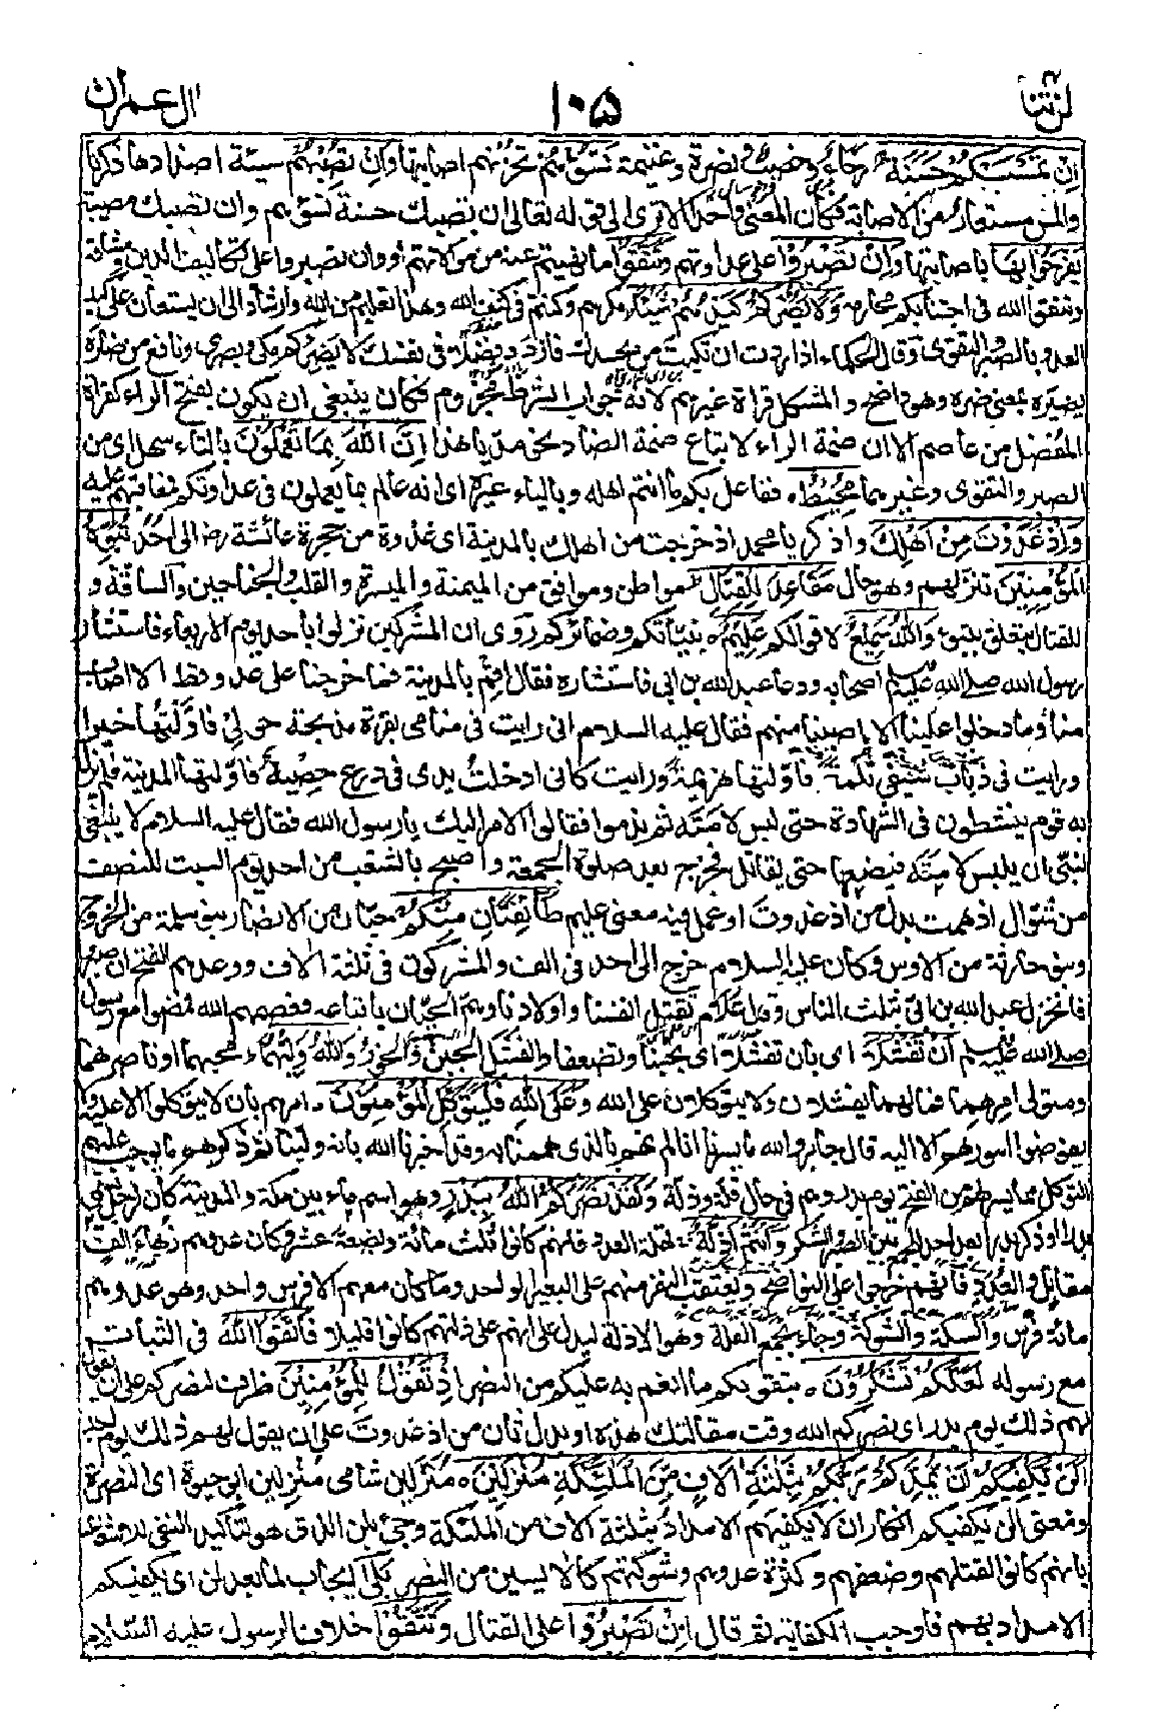 لن تنا ۴ ١٠٥ اٰل عمران
اِنْ تَمْسَسْكُمْ حَسَنَةٌ رخاء وخصب ونصرة وغنيمة تَسُؤْهُمْ تحزنهم اصابتها وَاِنْ تُصِبْكُمْ سيئة اضداد ما ذكرنا
والمس مستعار من الاصابة فكأن المعنى واحد الا ترى الى قوله تعالى ان تصبك حسنة تسؤهم وان تصبك مصيبة
يَفْرَحُوْا بِهَا باصابتها وَاِنْ تَصْبِرُوْا على عداوتهم وَتَتَّقُوْا ما نهيتم عنه من موالاتهم او وان تصبروا على تكاليف الدين ومشاقه
وتتقوا الله فى اجتنابكم محارمه وَلَا يَضُرُّكُمْ كَيْدُهُمْ شَيْئًا مكرهم وكنتم فى كنف الله وهذا تعليم من الله وارشاد الى ان يستعان على كيد
العدو بالصبر والتقوى وقال الحكماء اذا اردت ان تكبت من يحسدك فازدد فضلا فى نفسك لا يَضِرْكم مكى وبصرى ونافع من ضاره
يضيره بمعنى ضره وهو واضح والمشكل قراءة غيرهم لانه جواب الشرط مجزوم فكان ينبغى ان يكون بفتح الراء كقراءة
المفضل عن عاصم الا ان ضمة الراء لاتباع ضمة الضاد نحو مد يا هذا اِنَّ اللّٰهَ بِمَا تَعْمَلُوْنَ بالتاء سهل اى من
الصبر والتقوى وغيرهما مُحِيْطٌ ففاعل بكم ما انتم اهله وبالياء غيره اى انه عالم بما يعملون فى عداوتكم فمعاقبهم عليه
وَاِذْ غَدَوْتَ مِنْ اَهْلِكَ واذكر يا محمد اذ خرجت من اهلك بالمدينة اى غدوة من حجرة عائشة رض الى احد تُبَوِّئُ
الْمُؤْمِنِيْنَ تنزلهم وهو حال مَقَاعِدَ لِلْقِتَالِ مواطن ومواقف من الميمنة والميسرة والقلب والجناحين والساقة و
للقتال يتعلق بتبوئ وَاللّٰهُ سَمِيْعٌ لاقوالكم عَلِيْمٌ بنياتكم وضمائركم روى ان المشركين نزلوا باحد يوم الاربعاء فاستشار
رسول الله صلى الله عليه وسلم اصحابه ودعا عبد الله بن ابى فاستشاره فقال اقم بالمدينة فما خرجنا على عدو قط الا اصاب
منا وما دخلوا علينا الا اصبنا منهم فقال عليه السلام انى رايت فى منامى بقرة مذبحة حولى فاولتها خيرا
ورايت فى ذباب سيفى ثلمة فاولتها هزيمة ورايت كانى ادخلت يدى فى درع حصينة فاولتها المدينة فلم يزل
به قوم ينشطون فى الشهادة حتى لبس لامته ثم ندموا فقالوا الامر اليك يا رسول الله فقال عليه السلام لا ينبغى
لنبى ان يلبس لامته فيضعها حتى يقاتل فخرج بعد صلوة الجمعة واصبح بالشعب من احد يوم السبت للنصف
من شوال اذ همت بدل من اذ غدوت او عمل فيه معنى عليم طَائِفَتَانِ مِنْكُمْ حيان من الانصار بنو سلمة من الخزرج
وبنو حارثة من الاوس وكان عليه السلام خرج الى احد فى الف والمشركون فى ثلثة الاف ووعدهم الفتح ان صبروا
فانخزل عبد الله بن ابى بثلث الناس وقال علام نقتل انفسنا واولادنا وهم الحيان باتباعه فعصمهم الله فمضوا مع رسول
صلى الله عليه وسلم اَنْ تَفْشَلَا اى بان تفشلا اى تجبنا وتضعفا والفشل الجبن والخور وَاللّٰهُ وَلِيُّهُمَا محبهما او ناصرهما
ومتولى امرهما فما لهما يفشلان ولا يتوكلان على الله وَعَلَى اللّٰهِ فَلْيَتَوَكَّلِ الْمُؤْمِنُوْنَ امرهم بان لا يتوكلوا الا عليه ولا
يفوضوا امورهم الا اليه قال جابر والله ما يسرنا انا لم نهم بالذى هممنا به وقد اخبرنا الله بانه ولينا ثم ذكرهم ما يوجب عليهم
التوكل مما يسر لهم من الفتح يوم بدر وهم فى حال قلة وذلة وَلَقَدْ نَصَرَكُمُ اللّٰهُ بِبَدْرٍ وهو اسم ماء بين مكة والمدينة كان لرجل يسمى
بدرا او ذكر بدرا بعد احد للجمع بين الصبر والشكر وَاَنْتُمْ اَذِلَّةٌ لقلة العدد فانهم كانوا ثلث مائة وبضعة عشر وكان عدوهم زهاء الف
مقاتل والعدد فانهم خرجوا على النواضح ويعتقب النفر منهم على البعير الواحد وما كان معهم الا فرس واحد وهو عدوهم
مائة فرس والسكة والشوكة وجاء بجمع القلة وهو الاذلة ليدل على انهم على ذلتهم كانوا قليلا فَاتَّقُوا اللّٰهَ فى الثبات
مع رسوله لَعَلَّكُمْ تَشْكُرُوْنَ بتقوىكم ما انعم به عليكم من النصر اِذْ تَقُوْلُ لِلْمُؤْمِنِيْنَ ظرف لنصركم على ان يقول
لهم ذلك يوم بدر اى نصركم الله وقت مقالتك هذه او بدل ثان من اذ غدوت على ان يقول لهم ذلك يوم احد
اَلَنْ يَّكْفِيَكُمْ اَنْ يُّمِدَّكُمْ رَبُّكُمْ بِثَلٰثَةِ اٰلَافٍ مِّنَ الْمَلٰٓئِكَةِ مُنْزَلِيْنَ مُنَزَّلين شامى مُنْزِلين ابو حيوة اى النصرة
ومعنى الن يكفيكم انكار ان لا يكفيهم الامداد بثلثة الاف من الملئكة وجئ بلن الذى هو لتاكيد النفى للاشعار
بانهم كانوا لقلتهم وضعفهم وكثرة عدوهم وشوكتهم كالآيسين من النصر بَلٰى ايجاب لما بعد لن اى يكفيكم
الامداد بهم فاوجب الكفاية ثم قال اِنْ تَصْبِرُوْا على القتال وَتَتَّقُوْا خلاف الرسول عليه السلام